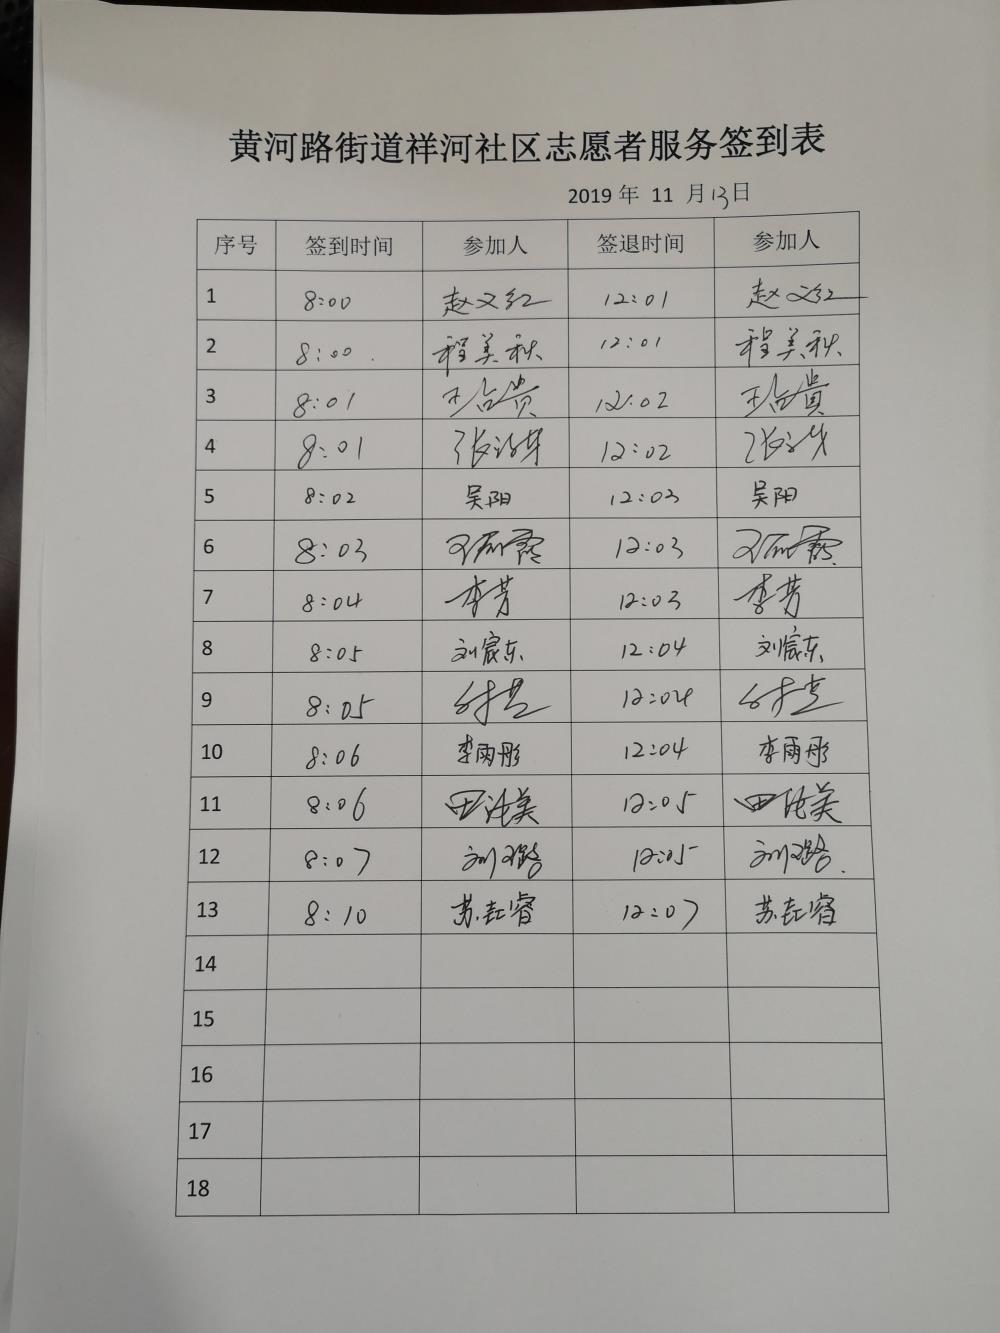 黄河路街道祥河社区志愿者服务签到表
2019 年 11 月 13 日
序号 签到时间 参加人 签退时间 参加人
1 8:00 赵文红 12:01 赵文红
2 8:00 程美秋 12:01 程美秋
3 8:01 12:02
4 8:01 12:02
5 8:02 吴阳 12:03 吴阳
6 8:03 12:03
7 8:04 李芳 12:03 李芳
8 8:05 刘宸东 12:04 刘宸东
9 8:05 12:04
10 8:06 李雨彤 12:04 李雨彤
11 8:06 12:05
12 8:07 刘璐 12:05 刘璐
13 8:10 12:07
14
15
16
17
18